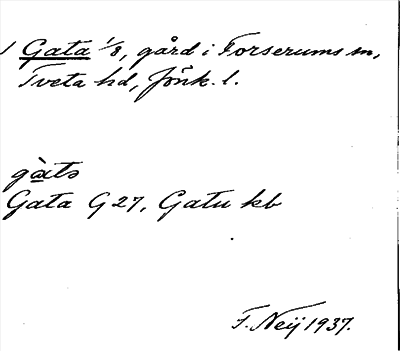 1 Gata 1/8, gård i Forserums sn,
Tveta hd, Jönk. l.
gàtə
Gata G 27, Gatu kb
F. Neij 1937.